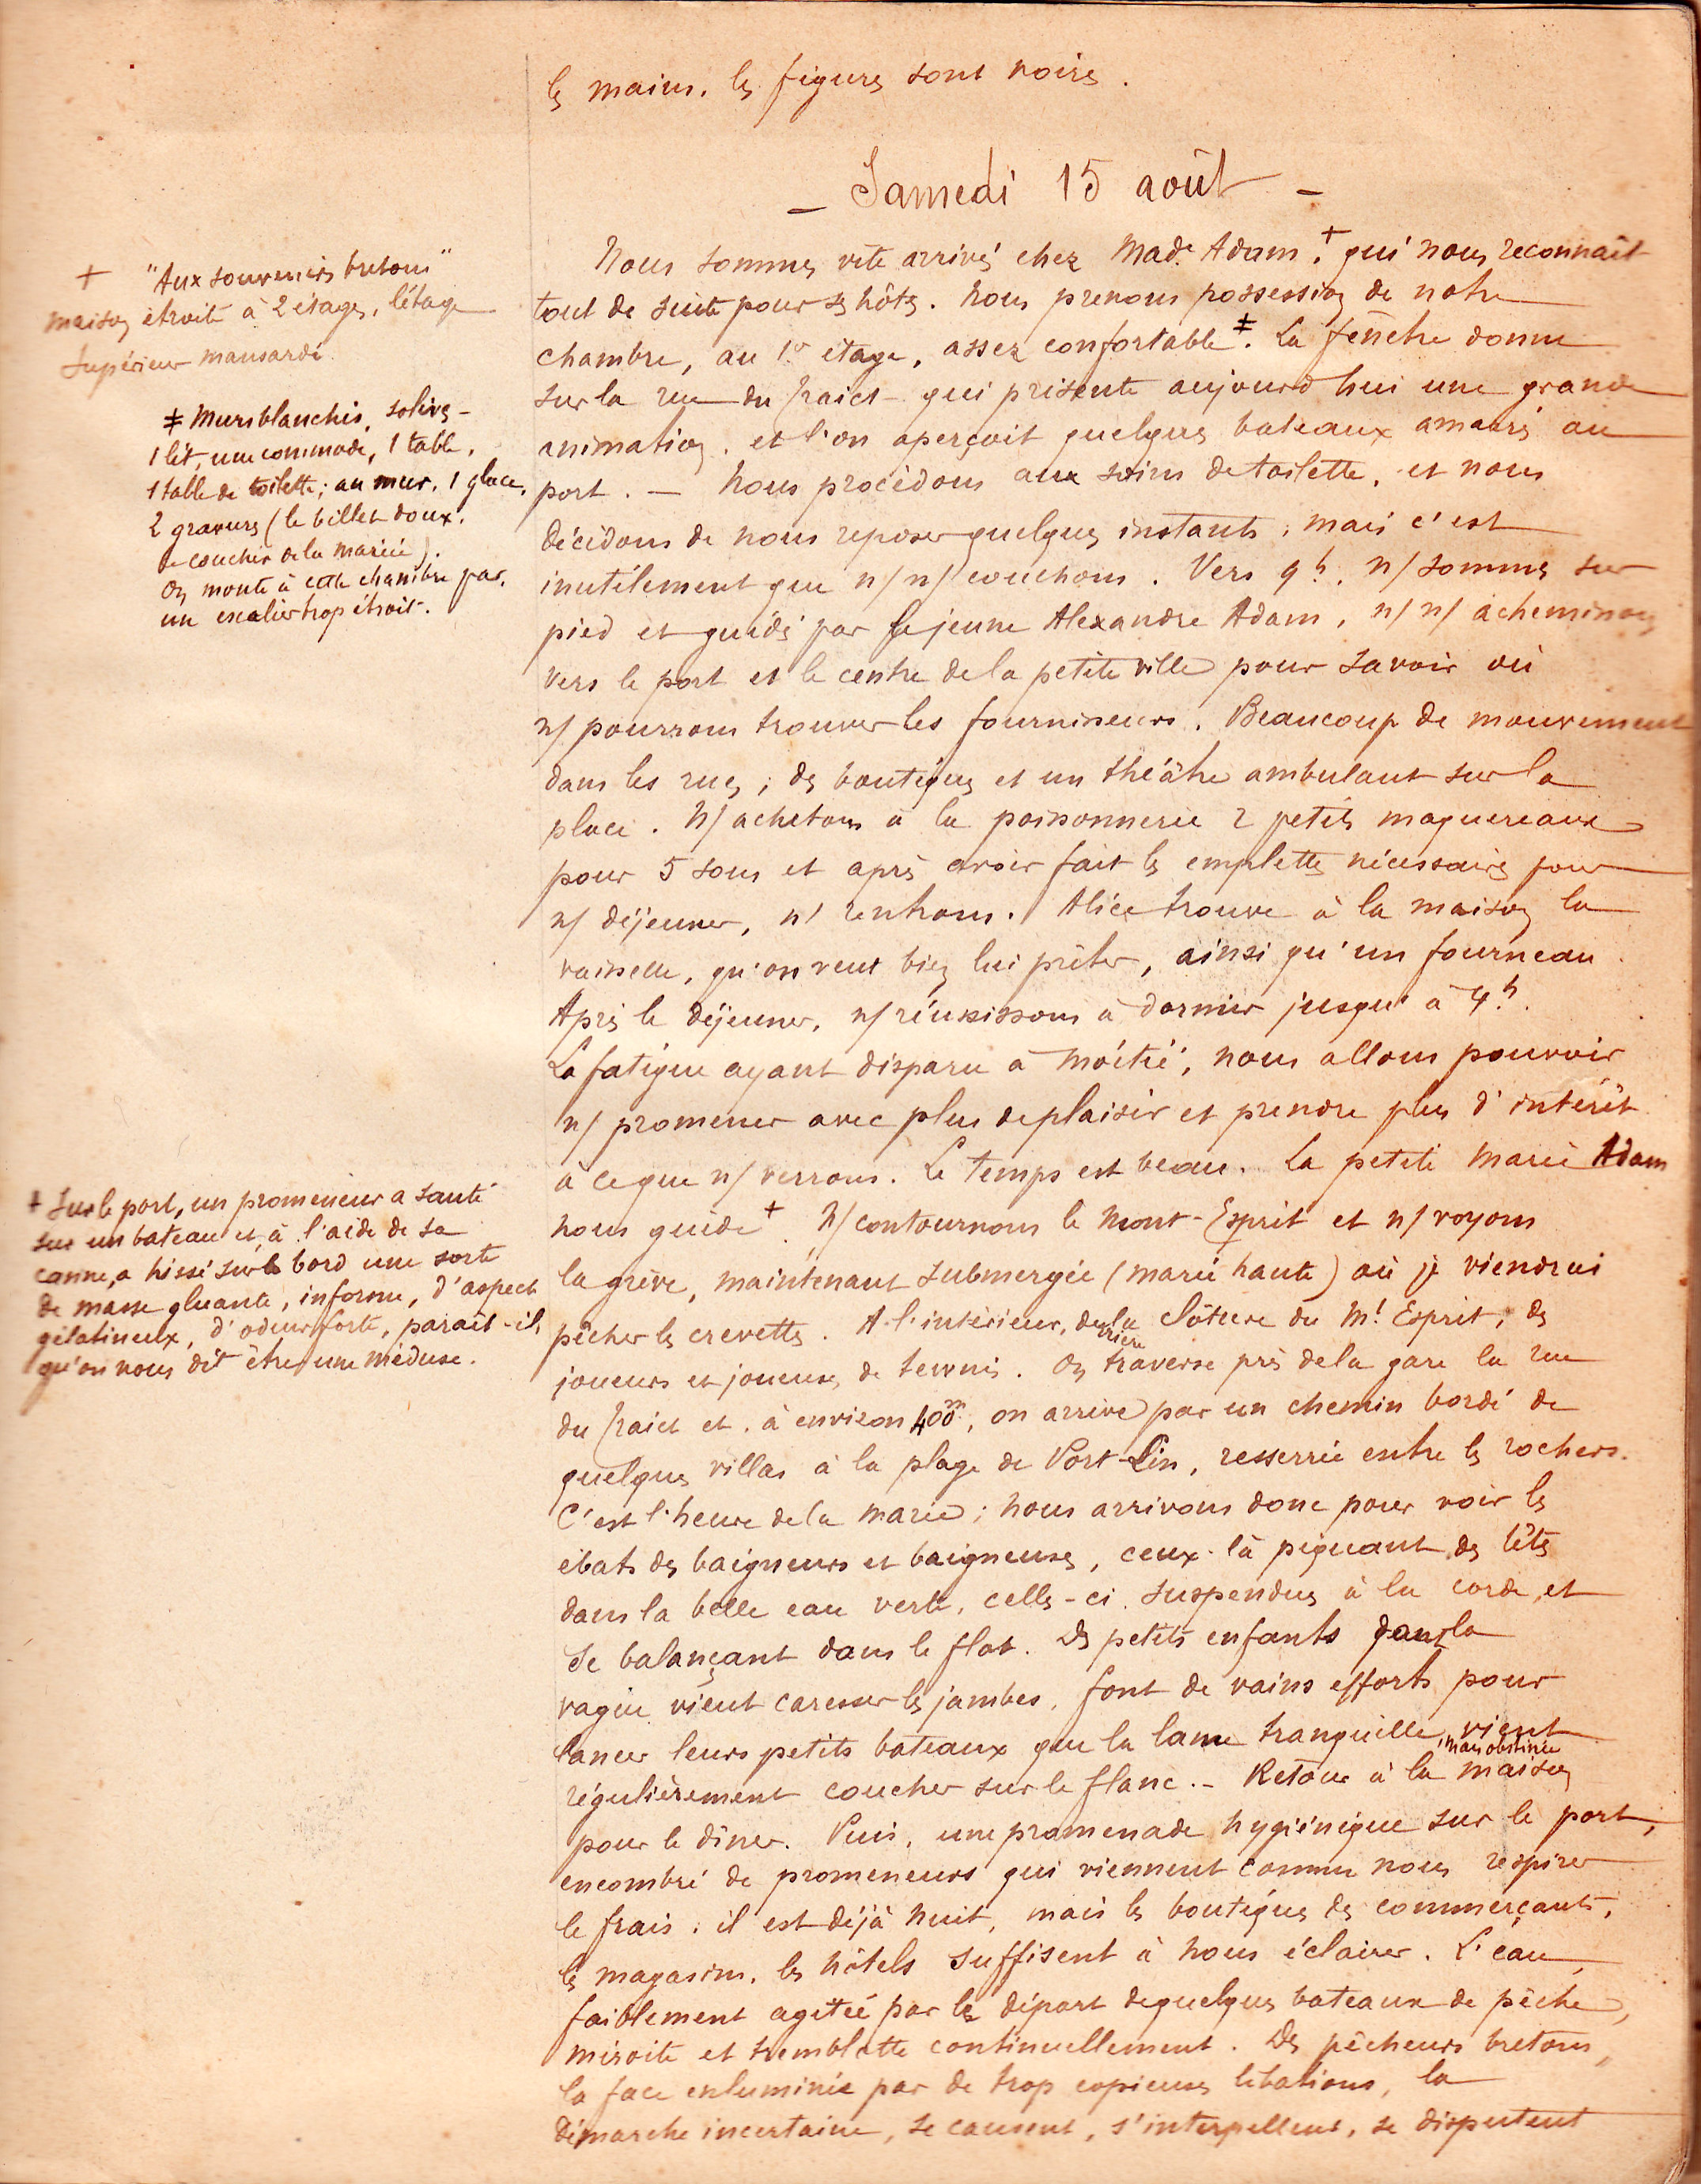 les mains, les figures sont noires.
— Samedi 15 août —
Nous sommes vite arrivés chez Made Adam + qui nous reconnaît
tout de suite pour ses hôtes. Nous prenons possession de notre
chambre, au 1er étage, assez confortable ‡. La fenêtre donne
sur la rue du Traict qui présente aujourd'hui une grande
animation, et l'on aperçoit quelques bateaux amarrés au
port. — Nous procédons aux soins de toilette, et nous
décidons de nous reposer quelques instants, mais c'est
inutilement que n/ n/ couchons. Vers 9h, n/ sommes sur
pied et guidés par le jeune Alexandre Adam, n/ n/ acheminons
vers le port et le centre de la petite ville pour savoir où
n/ pourrons trouver les fournisseurs. Beaucoup de mouvement
dans les rues ; des boutiques et un théâtre ambulant sur la
place. N/ achetons à la poissonnerie 2 petits maquereaux
pour 5 sous et après avoir fait les emplettes nécessaires pour
n/ déjeuner, n/ rentrons. Alice trouve à la maison la
vaisselle, qu'on veut bien lui prêter, ainsi qu'un fourneau.
Après le déjeuner, n/ réussissons à dormir jusqu'à 4h.
La fatigue ayant disparu à moitié, nous allons pouvoir
n/ promener avec plus de plaisir et prendre plus d'intérêt
à ce que n/ verrons. Le temps est beau. La petite Marie Adam
nous guide +. N/ contournons le Mont-Esprit et n/ voyons
la grève, maintenant submergée (marée haute) où je viendrai
pêcher les crevettes. A l'intérieur, derrière la clôture du Mt Esprit, des
joueurs et joueuses de tennis. On traverse près de la gare la rue
du Traict et, à environ 400m, on arrive par un chemin bordé de
quelques villas à la plage de Port-Lin, resserrée entre les rochers.
C'est l'heure de la marée ; nous arrivons donc pour voir les
ébats des baigneurs et baigneuses, ceux-là piquant des têtes
dans la belle eau verte, celles-ci suspendues à la corde et
se balançant dans le flot. Des petits enfants dont la
vague vient caresser les jambes, font de vains efforts pour
lancer leurs petits bateaux que la lame tranquille, mais obstinée vient
régulièrement coucher sur le flanc. — Retour à la maison
pour le dîner. Puis, une promenade hygiénique sur le port,
encombré de promeneurs qui viennent comme nous respirer
le frais ; il est déjà nuit, mais les boutiques des commerçants,
les magasins, les hôtels suffisent à nous éclairer. L'eau,
faiblement agitée par le départ de quelques bateaux de pêche,
miroite et tremblotte continuellement. Des pêcheurs bretons,
la face enluminée par de trop copieuses libations, la
démarche incertaine, se causent, s'interpellent, se disputent
+ "Aux souvenirs bretons"
maison étroite à 2 étages, l'étage
supérieur mansardé
‡ Murs blanchis, solives —
1 lit, une commode, 1 table,
1 table de toilette ; au mur, 1 glace,
2 gravures (le billet doux,
le coucher de la mariée).
On monte à cette chambre par
un escalier trop étroit.
+ Sur le port, un promeneur a sauté
sur un bateau et, à l'aide de sa
canne, a hissé sur le bord une sorte
de masse gluante, informe, d'aspect
gélatineux, d'odeur forte, paraît-il,
qu'on nous dit être une méduse.